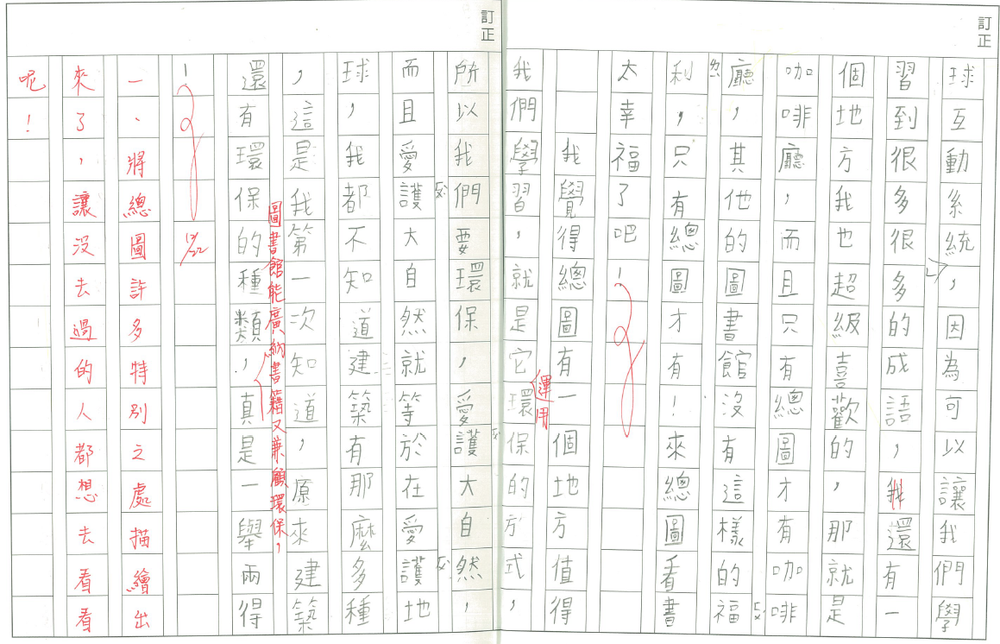 訂正
訂正
球互動系統，因為可以讓我們學
習到很多很多的成語，我還有一
個地方我也超級喜歡的，那就是
咖啡廳，而且只有總圖才有咖啡
廳，其他的圖書館沒有這樣的福
利，只有總圖才有！來總圖看書
太幸福了吧！
我覺得總圖有一個地方值得
我們學習，就是它環保的方式，
運用
所以我們要環保，愛護大自然，
而且愛護大自然就等於在愛護地
球，我都不知道建築有那麼多種
，這是我第一次知道，原來建築
還有環保的種類，真是一舉兩得
圖書館能廣納書籍又兼顧環保，
！
12/22
一、將總圖許多特別之處描繪出
來了，讓沒去過的人都想去看看
呢！